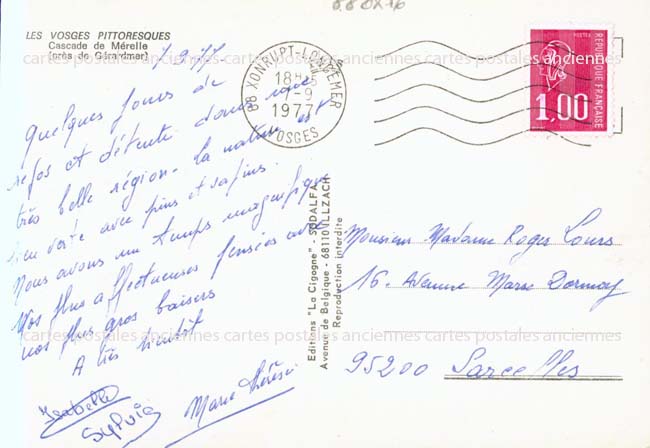 88 DX 76
LES VOSGES PITTORESQUES
Cascade de Mérelle
(près de Gérardmer)
7.9.77
Quelques jours de
repos et détente dans une
très belle région. La nature est
bien verte avec pins et sapins.
Nous avons un temps magnifique
Nos plus affectueuses pensées avec
nos plus gros baisers
A très bientôt
Isabelle
Sylvie
Marie Thérèse
88 XONRUPT-LONGEMER
18H
7-9
1977
VOSGES
POSTES
REPUBLIQUE FRANÇAISE
1,00
Editions "La Cigogne" - SODALFA
Avenue de Belgique - 68110 ILLZACH
Reproduction interdite
Monsieur Madame Roger Lours
16. Avenue Marx Dormoy
95200 Sarcelles
cartes postales anciennes cartes postales anciennes cartes postales anciennes
cartes postales anciennes cartes postales anciennes cartes postales anciennes